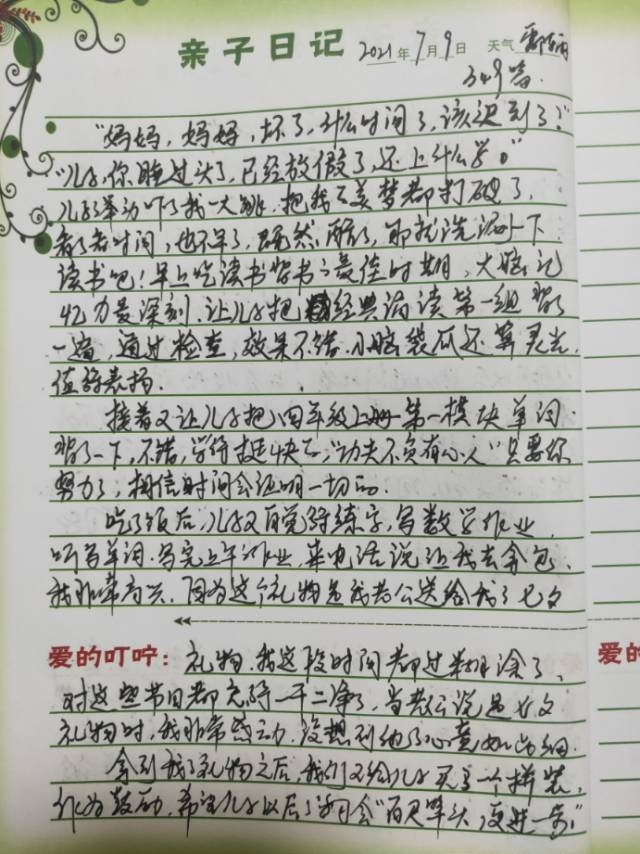 亲子日记 2021年7月9日 天气
349篇.
"妈妈,妈妈,坏了,什么时间了,该迟到了?"
"儿子,你睡过头了,已经放假了,还上什么学。"
儿子的举动吓了我一大跳,把我的美梦都打破了,
看了看时间,也不早了,既然醒了,那就洗漱一下
读书吧!早上吃读书背书之最佳时期,大脑记
忆力最深刻.让儿子把经典诵读第一组背了
一遍,通过检查,效果不错.小脑袋瓜还算灵光,
值得表扬.
接着又让儿子把四年级上册第一模块单词
背了一下,不错,学得挺快的,"功夫不负有心人"只要你
努力了,相信时间会证明一切的.
吃了饭后,儿子又自觉得练字,写数学作业,
听写单词.写完上午作业,来电话说让我去拿包,
我非常高兴,因为这个礼物是我老公送给我的七夕
爱的叮咛:礼物.我这段时间都过糊涂了,
对这些节日都忘得一干二净了,当老公说是七夕
礼物时,我非常感动.没想到他的心竟如此细.
拿到我的礼物之后,我们又给儿子买了一个拼装,
作为鼓励,希望儿子以后的学习会"百尺竿头,更进一步"
爱的